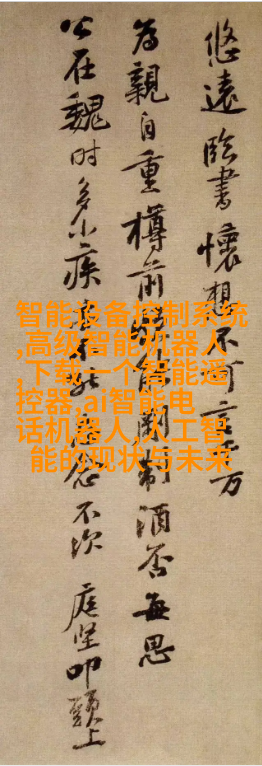 悠遠臨書懷想不可言千万
為親自重樽前能剛制酒否每思
公在魏时多小疾不能念不次 庭堅叩頭上
智能设备控制系统
,高级智能机器人
,下载一个智能遥
控器,ai智能电
话机器人,人工智
能的现状与未来